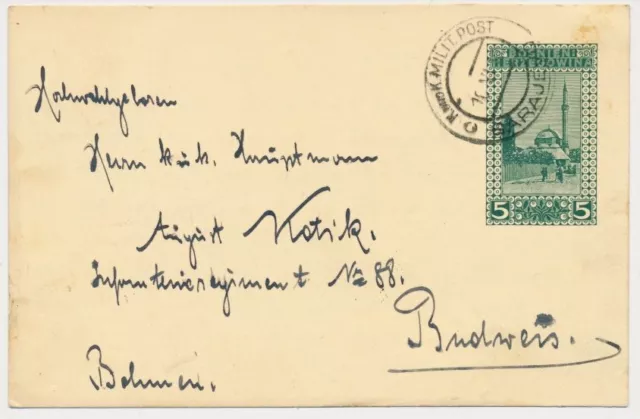 K. und K. MILIT. POST
SARAJE
BOSNIEN
HERZEGOWINA
5 5
Hochwohlgeboren
Herrn k.u.k. Hauptmann
August Kotik.
Infanterieregiment No 88.
Budweis.
Böhmen.